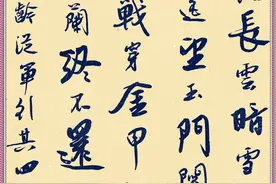 長雲暗雪
遥望玉門關
戰穿金甲
蘭終不還
齡從軍行其四